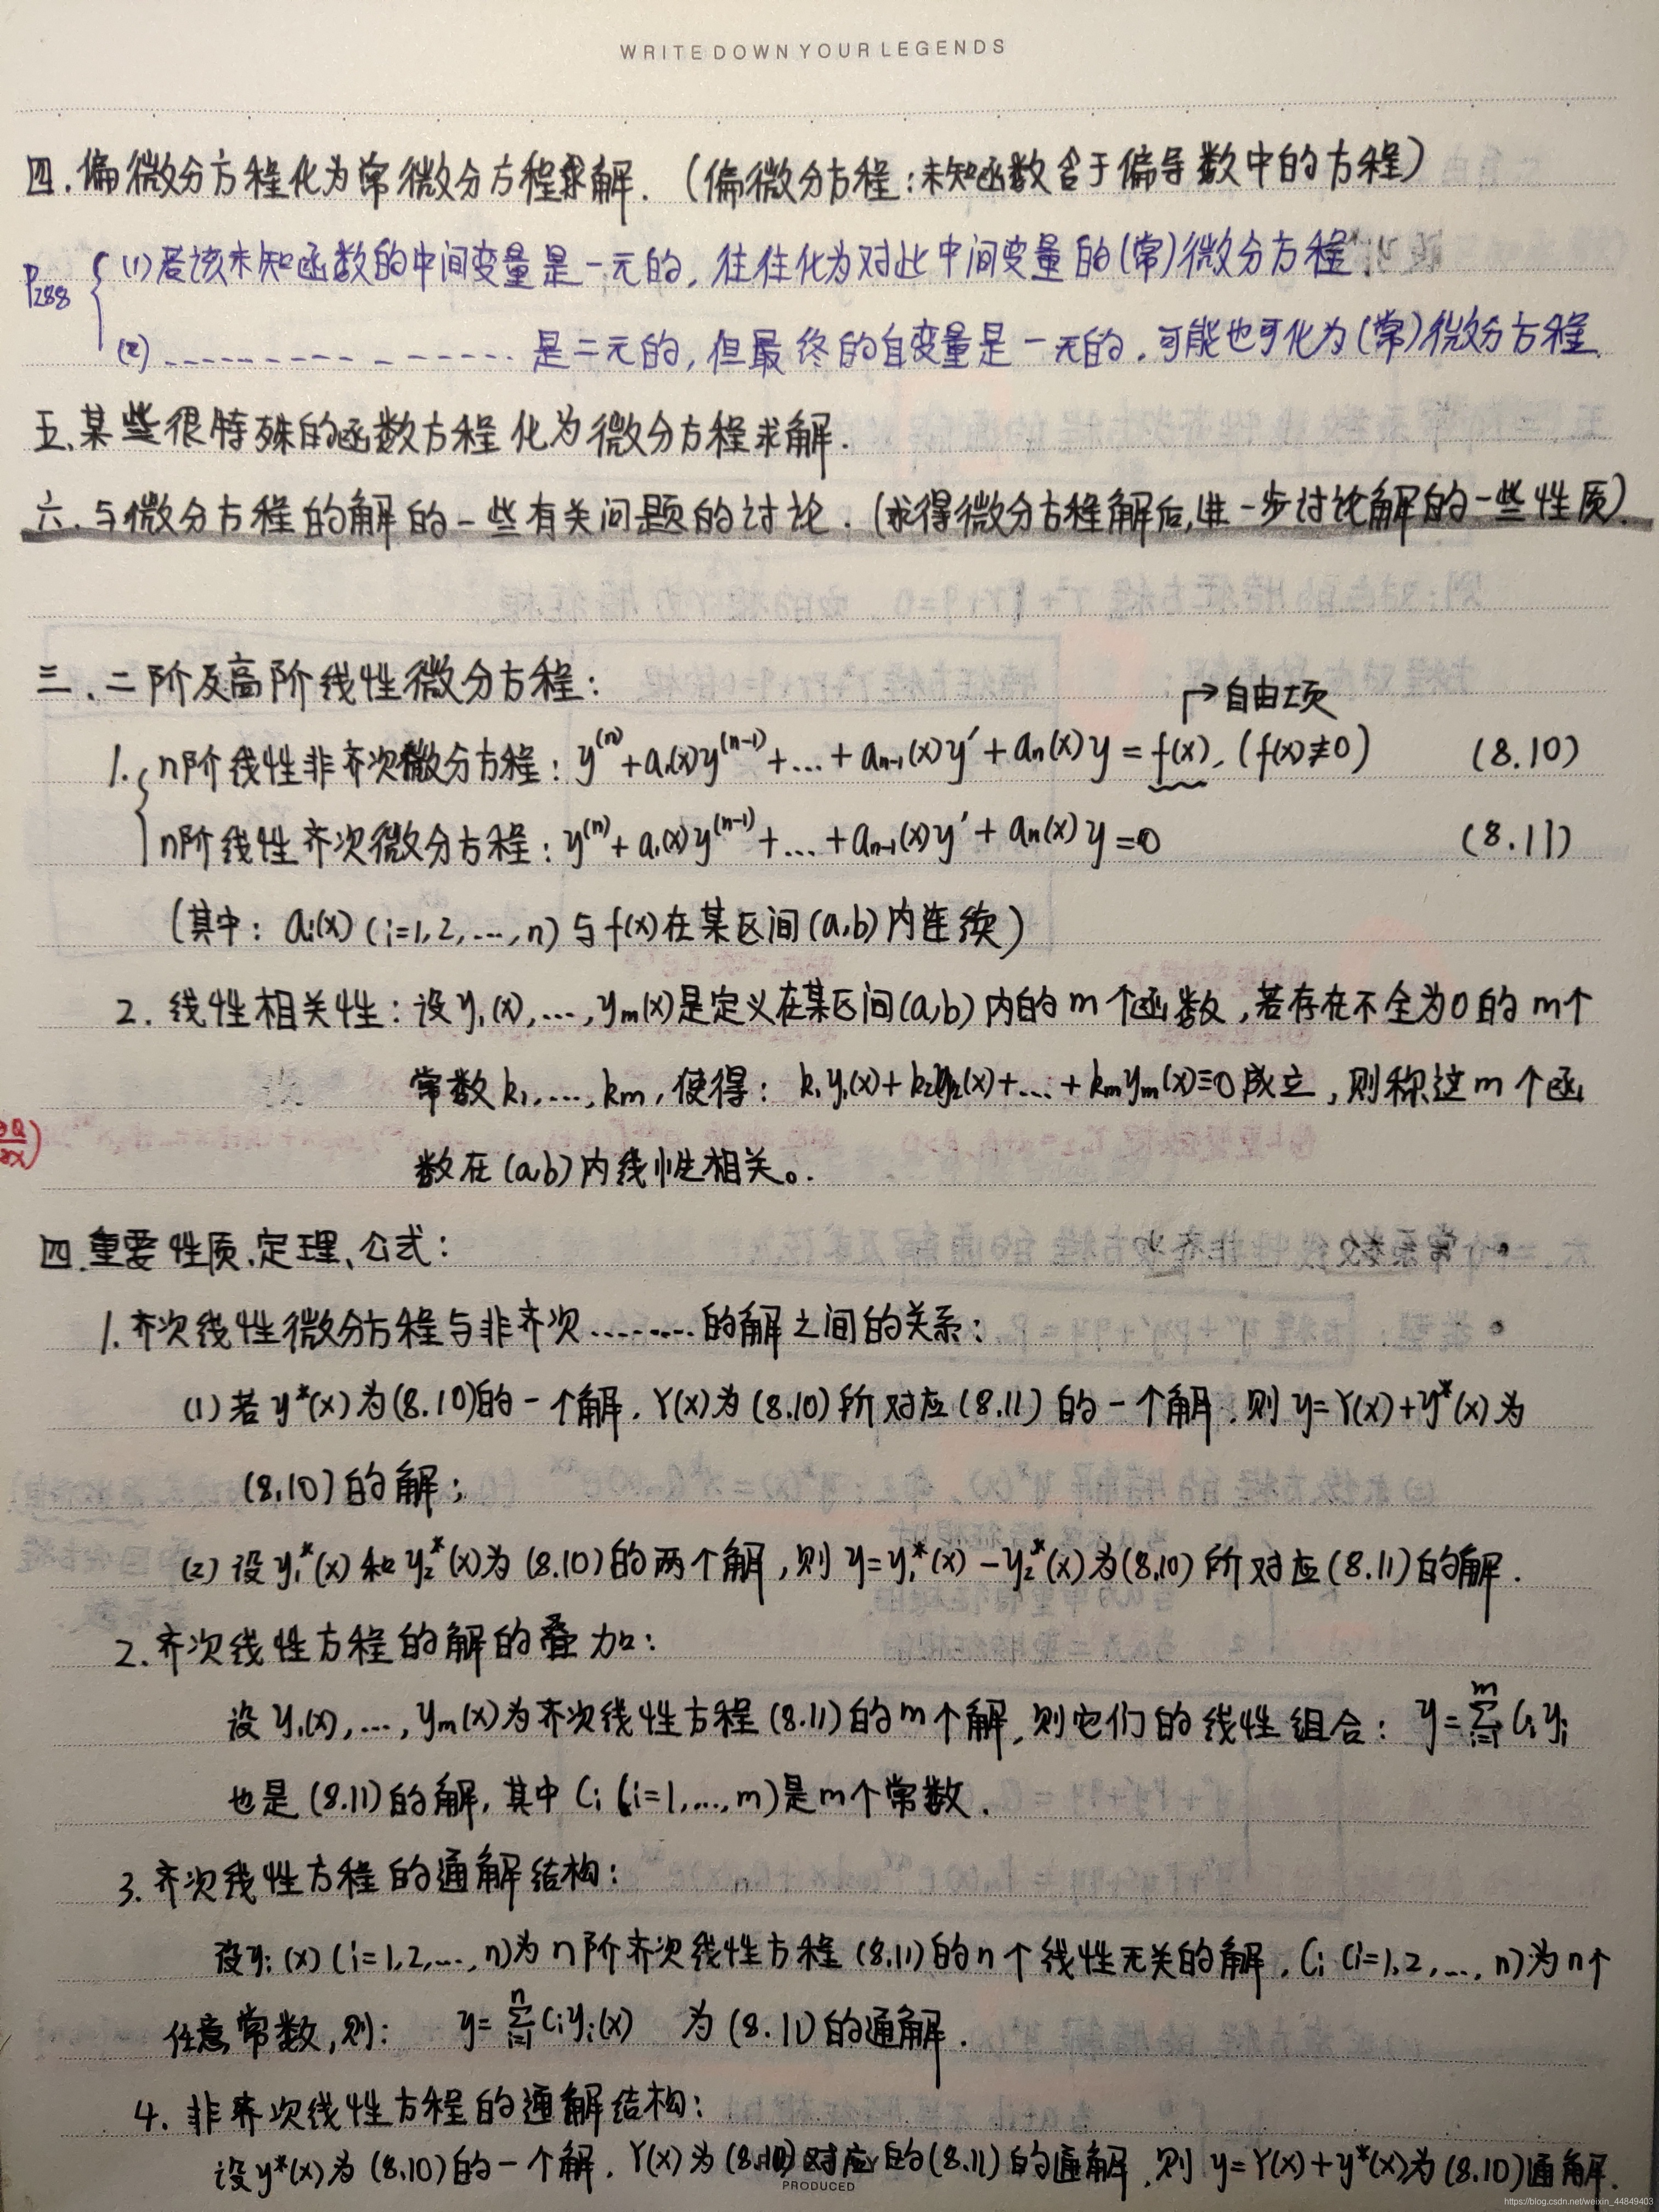 WRITE DOWN YOUR LEGENDS
四.偏微分方程化为常微分方程求解.(偏微分方程:未知函数含于偏导数中的方程)
P288 { (1)若该未知函数的中间变量是一元的,往往化为对此中间变量的(常)微分方程.
(2) -------------- 是二元的,但最终的自变量是一元的.可能也可化为(常)微分方程.
五.某些很特殊的函数方程化为微分方程求解.
六.与微分方程的解的一些有关问题的讨论.(求得微分方程解后,进一步讨论解的一些性质).
三.二阶及高阶线性微分方程:
↱自由项
1. { n阶线性非齐次微分方程: y⁽ⁿ⁾+a₁(x)y⁽ⁿ⁻¹⁾+...+aₙ₋₁(x)y′+aₙ(x)y=f(x), (f(x)≢0) (8.10)
n阶线性齐次微分方程: y⁽ⁿ⁾+a₁(x)y⁽ⁿ⁻¹⁾+...+aₙ₋₁(x)y′+aₙ(x)y=0 (8.11)
(其中: aᵢ(x) (i=1,2,...,n) 与f(x)在某区间(a,b)内连续)
2. 线性相关性:设y₁(x),...,yₘ(x)是定义在某区间(a,b)内的m个函数,若存在不全为0的m个
常数k₁,...,kₘ,使得: k₁y₁(x)+k₂y₂(x)+...+kₘyₘ(x)≡0成立,则称这m个函
∂Q/∂x)
数在(a,b)内线性相关。.
四.重要性质、定理、公式:
1.齐次线性微分方程与非齐次........的解之间的关系:
(1)若y*(x)为(8.10)的一个解,Y(x)为(8.10)所对应(8.11)的一个解,则y=Y(x)+y*(x)为
(8.10)的解;
(2)设y₁*(x)和y₂*(x)为(8.10)的两个解,则y=y₁*(x)-y₂*(x)为(8.10)所对应(8.11)的解.
2.齐次线性方程的解的叠加:
设y₁(x),...,yₘ(x)为齐次线性方程(8.11)的m个解,则它们的线性组合: y=∑ᵢ₌₁ᵐ Cᵢyᵢ
也是(8.11)的解,其中Cᵢ(i=1,...,m)是m个常数.
3.齐次线性方程的通解结构:
设yᵢ(x)(i=1,2,...,n)为n阶齐次线性方程(8.11)的n个线性无关的解,Cᵢ(i=1,2,...,n)为n个
任意常数,则: y=∑ᵢ₌₁ⁿCᵢyᵢ(x) 为(8.11)的通解.
4.非齐次线性方程的通解结构:
设y*(x)为(8.10)的一个解,Y(x)为(8.10)对应的(8.11)的通解,则y=Y(x)+y*(x)为(8.10)通解.
PRODUCED
https://blog.csdn.net/weixin_44849403